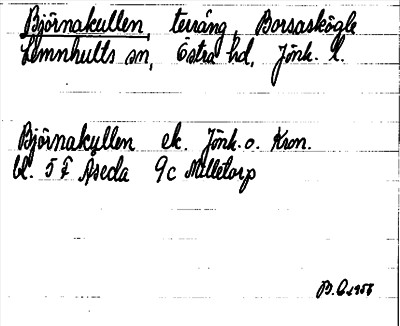 Björnakullen, terräng, Borsaskögle
Lemnhults sn, Östra hd, Jönk. l.
Björnakullen ek. Jönk. o. Kron.
bl. 5 F Åseda 9c Milletorp
B. 1958